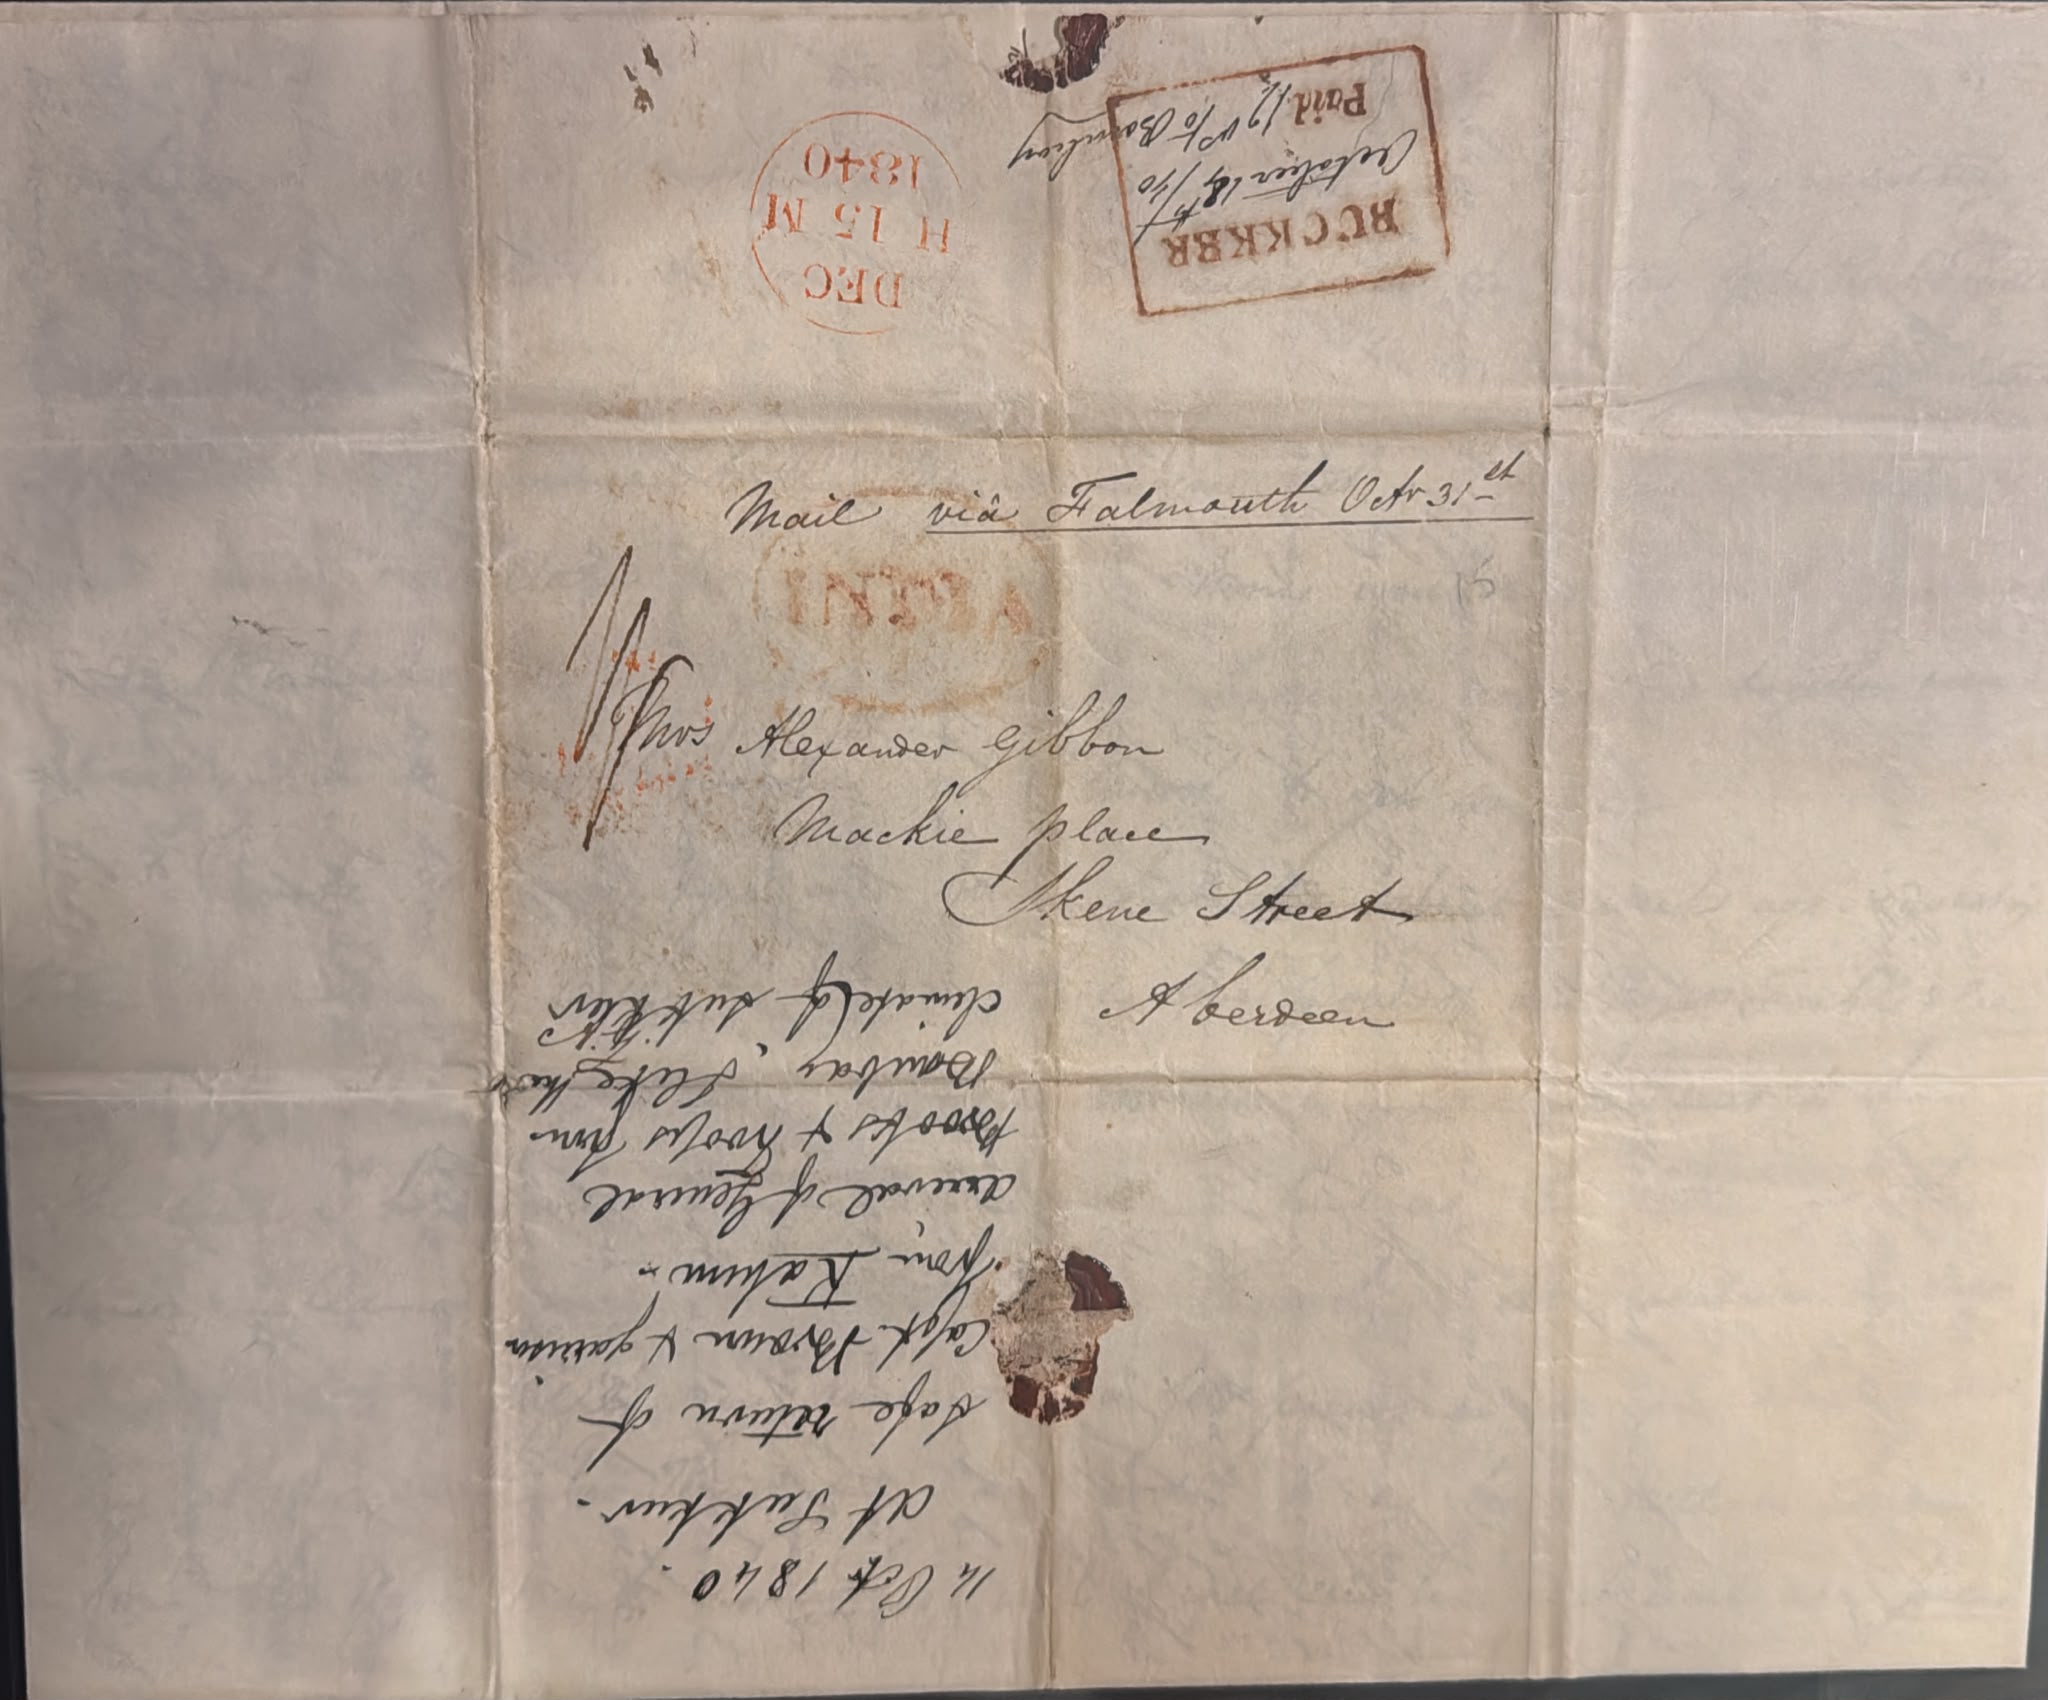 Mail viâ Falmouth Octr 31st
INDIA
Mrs Alexander Gibbon
Mackie place
Skene Street
Aberdeen
DEC
H 15 M
1840
BUCKKER
October 18th/40
Paid
to Bombay
14 Octr 1840.
At Sukkur.
Safe return of
Capt. Brown & garrison
from Kahun.
arrival of General
Brooks & troops from
Bombay,
climate of Sukkur